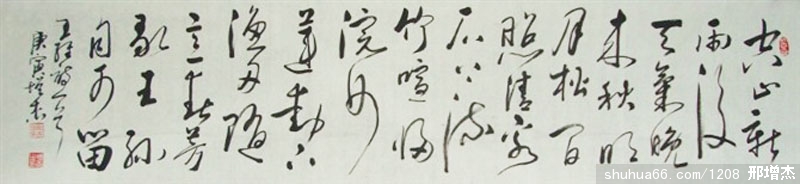 空山新
雨後
天氣晚
来秋明
月松间
照清泉
石上流
竹喧归
浣女
莲动下
渔舟随
意春芳
歇王孙
自可留
王维诗一首
庚寅增杰
shuhua66.com/1208 邢增杰